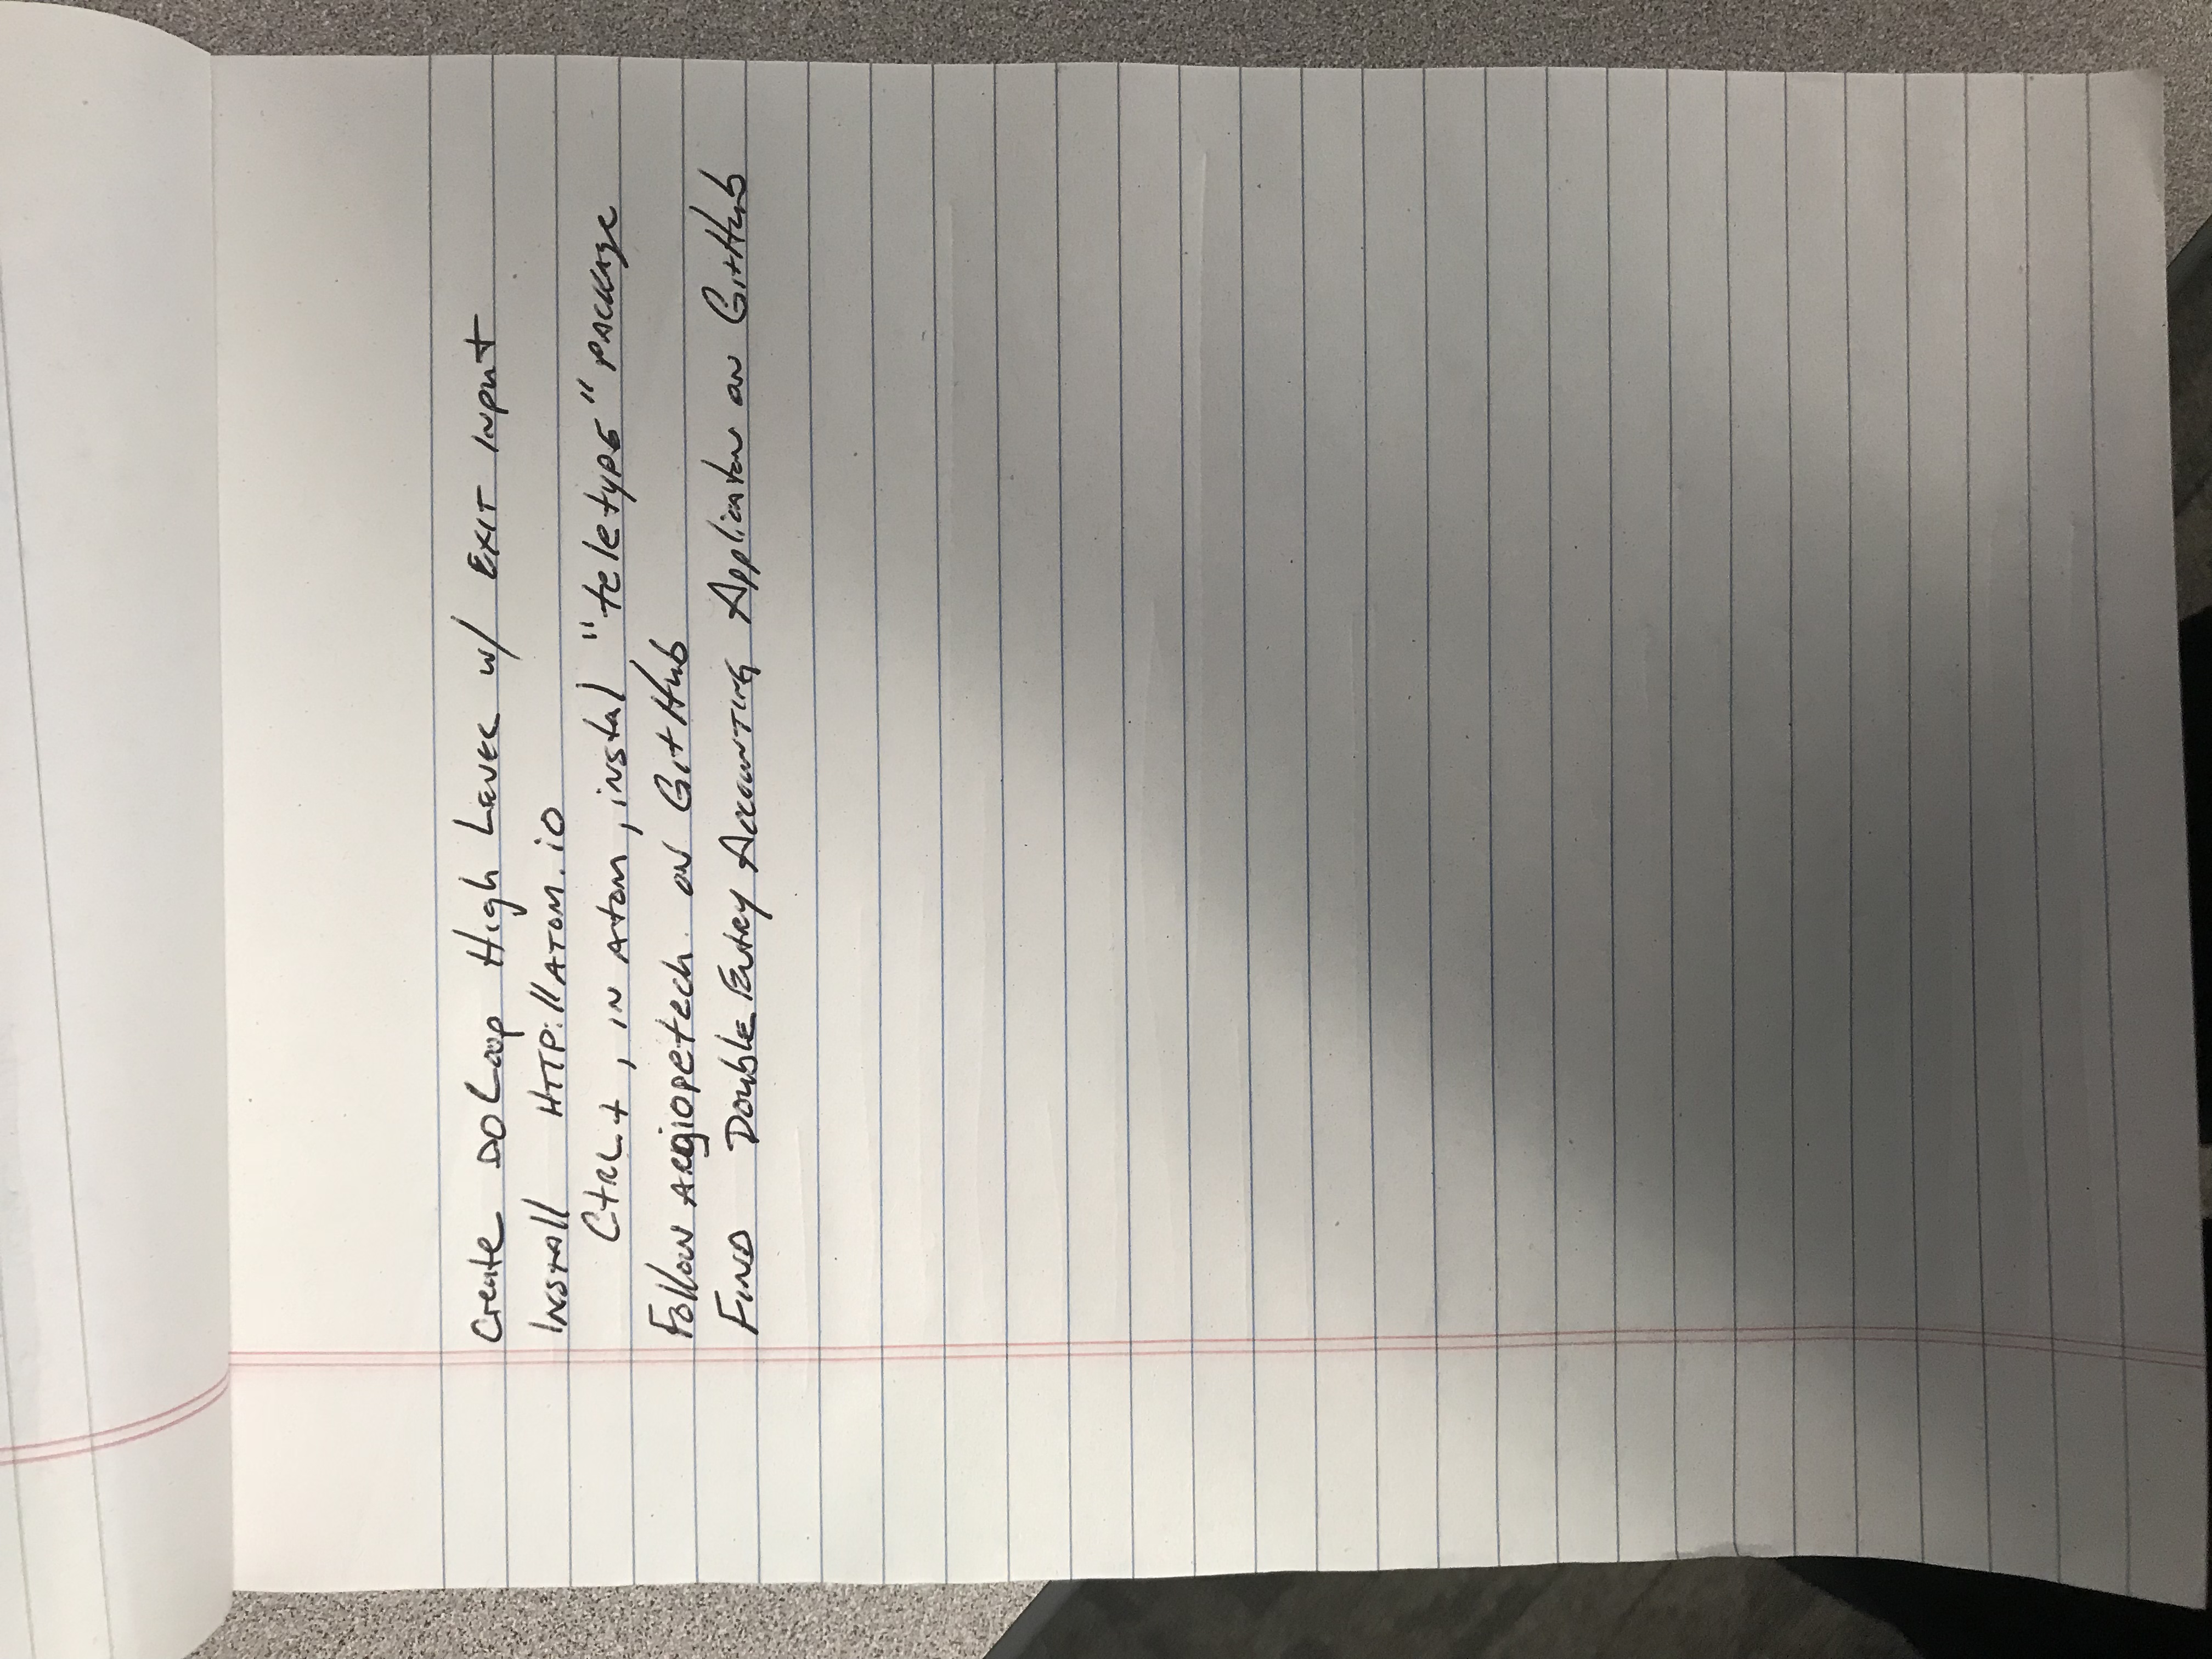 Create DO Loop High Level w/ EXIT Input
Install HTTP://ATOM.io
Ctrl + , in Atom, instal "teletype" package
Follow argiopetech on GitHub
Find Double Entry Accounting Applicaton on GitHub